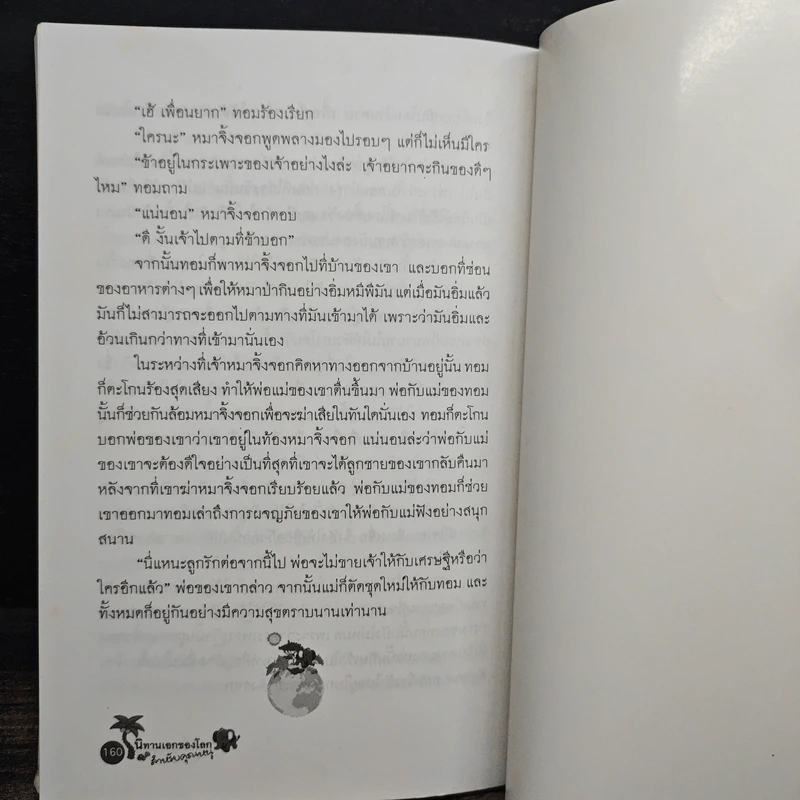 “เฮ้ เพื่อนยาก” ทอมร้องเรียก
“ใครนะ” หมาจิ้งจอกพูดพลางมองไปรอบๆ แต่ก็ไม่เห็นมีใคร
“ข้าอยู่ในกระเพาะของเจ้าอย่างไงล่ะ เจ้าอยากจะกินของดีๆ
ไหม” ทอมถาม
“แน่นอน” หมาจิ้งจอกตอบ
“ดี งั้นเจ้าไปตามที่ข้าบอก”
จากนั้นทอมก็พาหมาจิ้งจอกไปที่บ้านของเขา และบอกที่ซ่อน
ของอาหารต่างๆ เพื่อให้หมาป่ากินอย่างอิ่มหมีพีมัน แต่เมื่อมันอิ่มแล้ว
มันก็ไม่สามารถจะออกไปตามทางที่มันเข้ามาได้ เพราะว่ามันอิ่มและ
อ้วนเกินกว่าทางที่เข้ามานั่นเอง
ในระหว่างที่เจ้าหมาจิ้งจอกคิดหาทางออกจากบ้านอยู่นั้น ทอม
ก็ตะโกนร้องสุดเสียง ทำให้พ่อแม่ของเขาตื่นขึ้นมา พ่อกับแม่ของทอม
นั้นก็ช่วยกันล้อมหมาจิ้งจอกเพื่อจะฆ่าเสียในทันใดนั่นเอง ทอมก็ตะโกน
บอกพ่อของเขาว่าเขาอยู่ในท้องหมาจิ้งจอก แน่นอนล่ะว่าพ่อกับแม่
ของเขาจะต้องดีใจอย่างเป็นที่สุดที่เขาจะได้ลูกชายของเขากลับคืนมา
หลังจากที่เขาฆ่าหมาจิ้งจอกเรียบร้อยแล้ว พ่อกับแม่ของทอมก็ช่วย
เขาออกมาทอมเล่าถึงการผจญภัยของเขาให้พ่อกับแม่ฟังอย่างสนุก
สนาน
“นี่แหนะลูกรักต่อจากนี้ไป พ่อจะไม่ขายเจ้าให้กับเศรษฐีหรือว่า
ใครอีกแล้ว” พ่อของเขากล่าว จากนั้นแม่ก็ตัดชุดใหม่ให้กับทอม และ
ทั้งหมดก็อยู่กันอย่างมีความสุขตราบนานเท่านาน
160 นิทานเอกของโลก
สำหรับคุณหนู